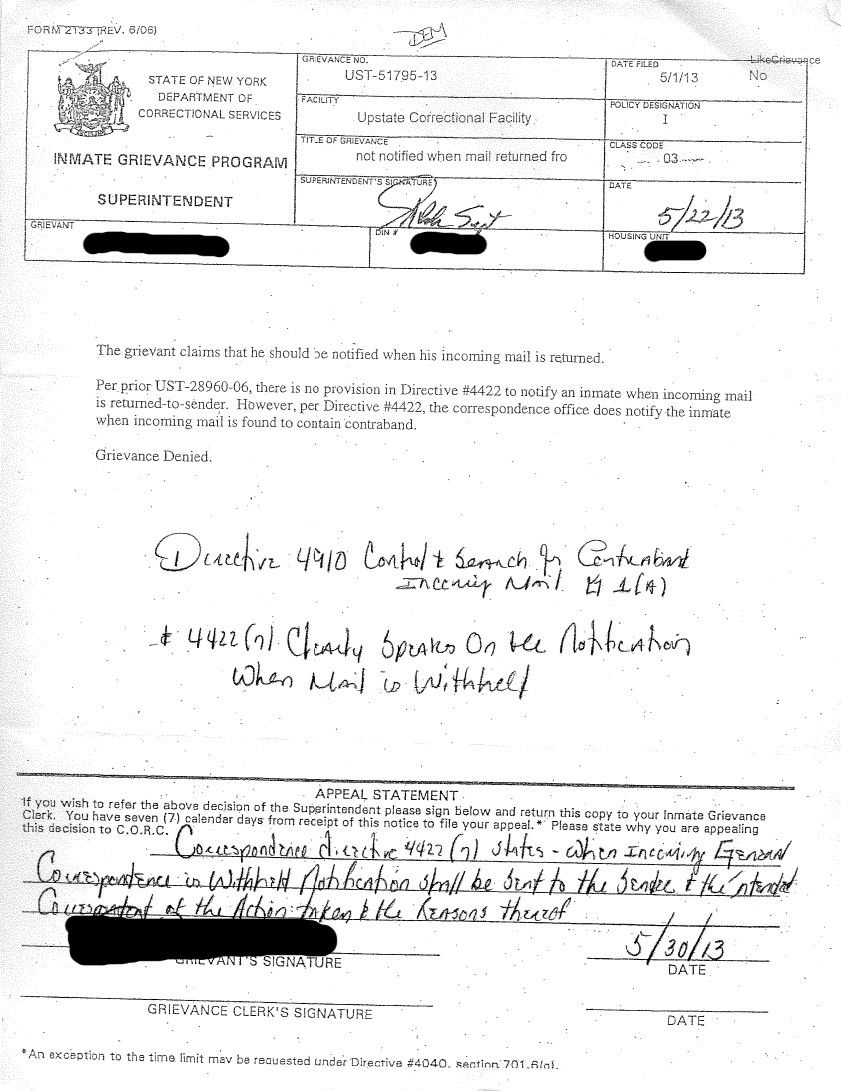 FORM 2133 (REV. 6/06)
DEM
STATE OF NEW YORK
DEPARTMENT OF
CORRECTIONAL SERVICES
INMATE GRIEVANCE PROGRAM
SUPERINTENDENT
GRIEVANCE NO.
UST-51795-13
DATE FILED
5/1/13
LikeGrievance
No
FACILITY
Upstate Correctional Facility
POLICY DESIGNATION
I
TITLE OF GRIEVANCE
not notified when mail returned fro
CLASS CODE
03
SUPERINTENDENT'S SIGNATURE
DATE
5/22/13
GRIEVANT
DIN #
HOUSING UNIT
The grievant claims that he should be notified when his incoming mail is returned.
Per prior UST-28960-06, there is no provision in Directive #4422 to notify an inmate when incoming mail
is returned-to-sender. However, per Directive #4422, the correspondence office does notify the inmate
when incoming mail is found to contain contraband.
Grievance Denied.
Directive 4910 Control & Search for Contraband
Incoming Mail 1(A)
& 4422 (7) Clearly Speaks On Notification
When Mail is Withheld
APPEAL STATEMENT
If you wish to refer the above decision of the Superintendent please sign below and return this copy to your Inmate Grievance
Clerk. You have seven (7) calendar days from receipt of this notice to file your appeal.* Please state why you are appealing
this decision to C.O.R.C.
Correspondence directive 4422 (7) States - when Incoming General
Correspondence is Withheld Notification shall be sent to the Sender & the intended
Correspondent of the Action taken & the Reasons thereof
5/30/13
GRIEVANT'S SIGNATURE
DATE
GRIEVANCE CLERK'S SIGNATURE
DATE
*An exception to the time limit may be requested under Directive #4040, section 701.6(g).